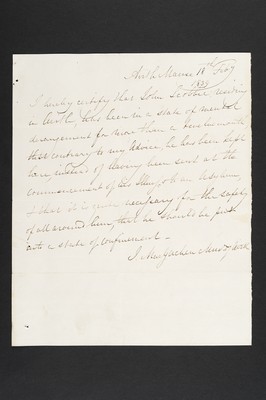 Airth Manse 18th Feby
1839
I hereby certify that John residing
in Airth, has been in a state of mental
derangement for more than a
that contrary to my advice he has been kept
here, instead of having been sent at the
commencement of his illness, to an Asylum,
& that it is now necessary for the safety
of all around him, that he should be put
into a state of confinement —